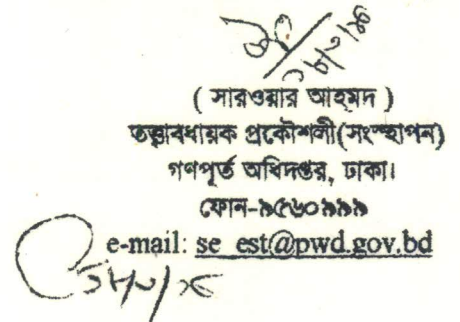 ( সারওয়ার আহমদ )
তত্ত্বাবধায়ক প্রকৌশলী(সংস্থাপন)
গণপূর্ত অধিদপ্তর, ঢাকা।
ফোন-৯৫৬০৯৯৯
e-mail: se_est@pwd.gov.bd